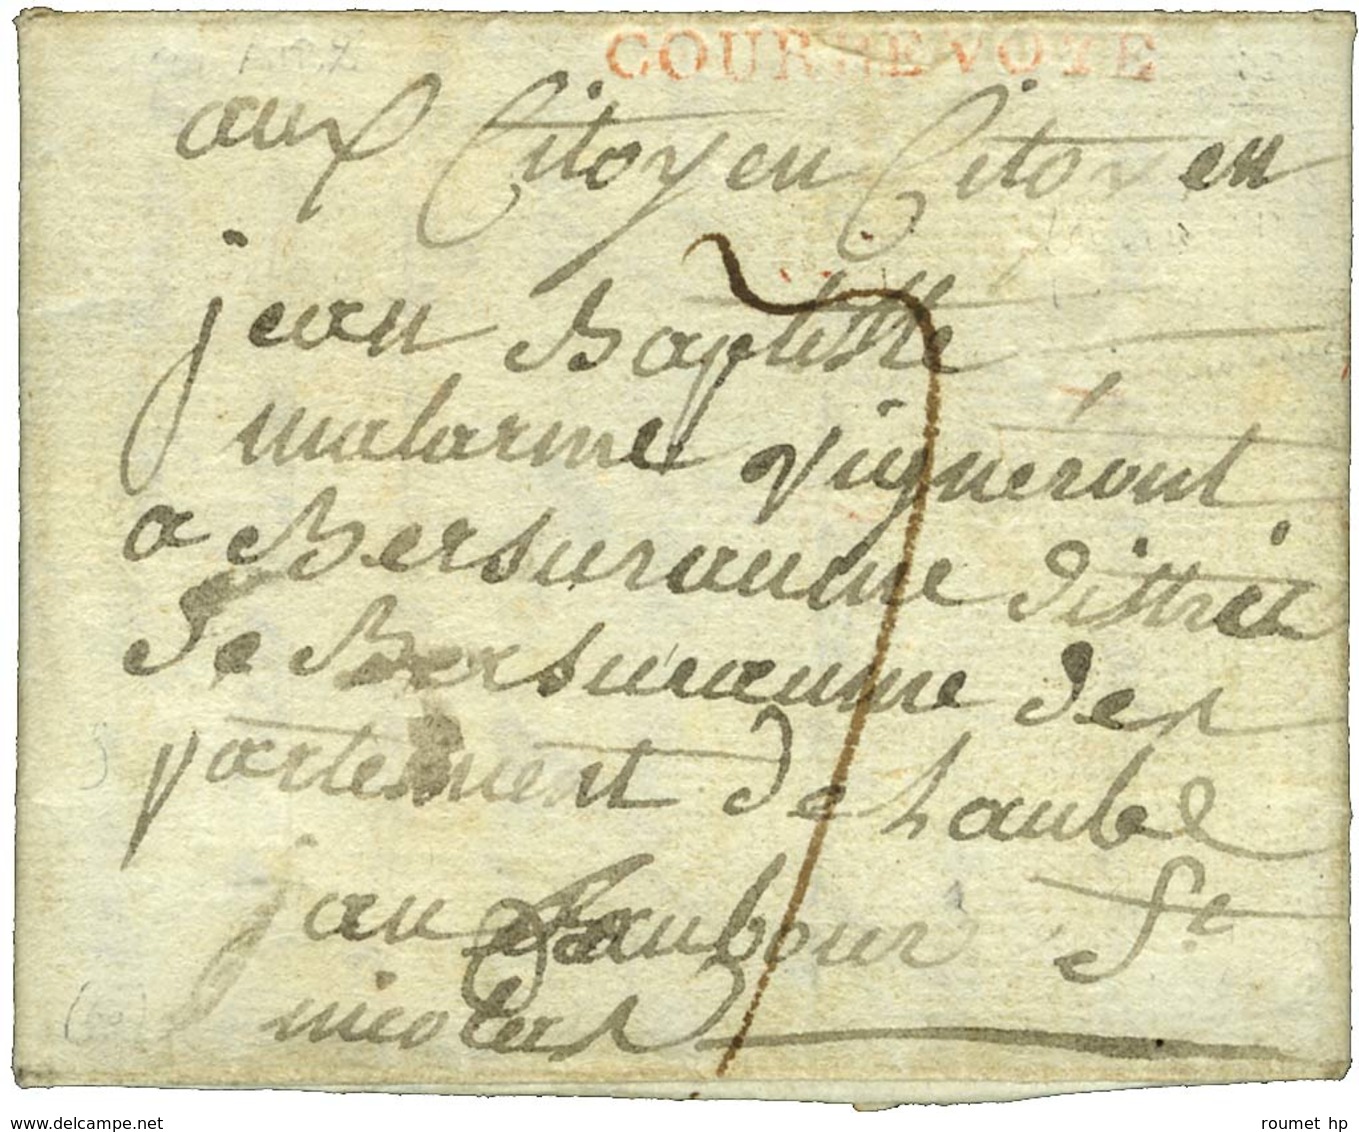 COURBEVOYE
aux Citoyen Citoyen
jean Baptiste
malarme vigneront
a Bersuraume distrit
de Bersuraume des
partement de Laube
au faubour St
nicolas
7
(60)
www.delcampe.net
roumet hp